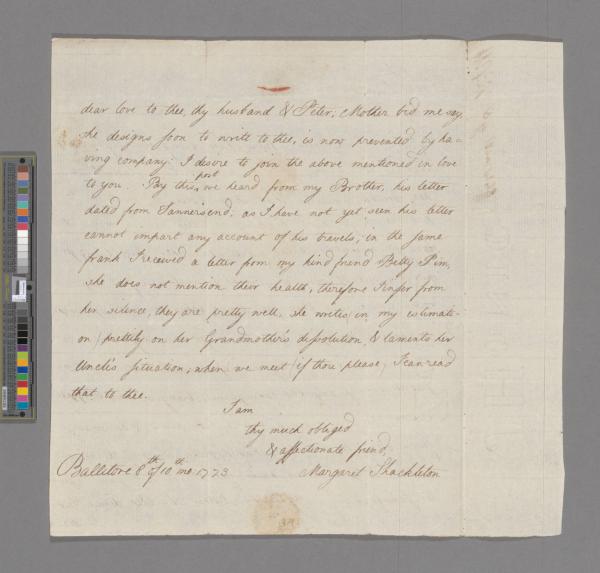 dear love to thee, thy husband & Peter; Mother bid me say
she designs soon to write to thee, is now prevented by ha=
ving company: I desire to join the above mentioned in love
to you. By this post, we heard from my Brother, his letter
dated from Tanner's end. as I have not yet seen his letter
cannot impart any account of his travels; in the same
frank I received a letter from my kind friend Betty Pim,
she does not mention their health, therefore I infer from
her silence, they are pretty well, she writes (in my estimati-
on) prettily on her Grandmother's dissolution, & laments her
Uncle's situation; when we meet (if thou please) I can read
that to thee.
I am
thy much obliged
& affectionate friend,
Margaret Shackleton
Ballitore 8th of 10th mo 1773